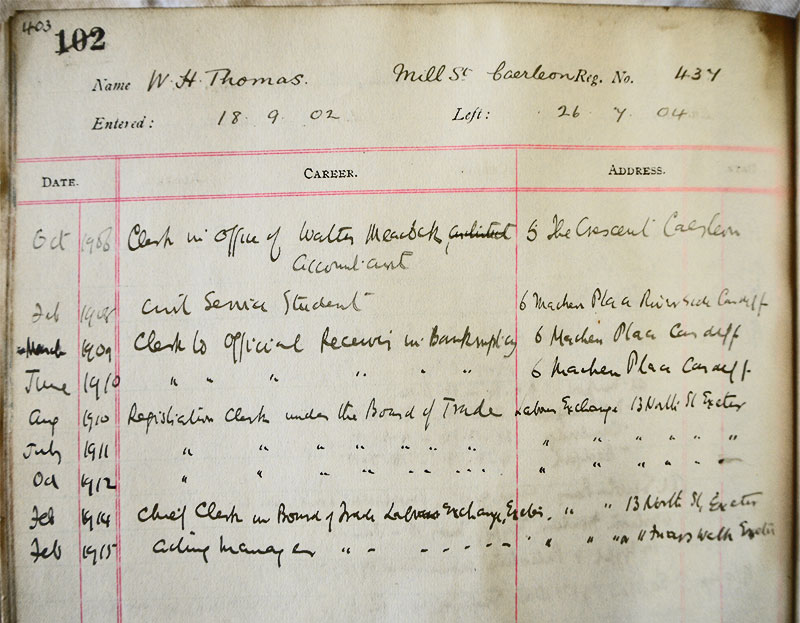 403
102
Name W. H. Thomas. Mill St Caerleon Reg. No. 437
Entered: 18 . 9 . 02 Left: 26 . 7 . 04
DATE. CAREER. ADDRESS.
Oct 1906 Clerk in Office of Walter architect 5 The Crescent Caerleon
Accountant
Feb 1908 Civil Service Student 6 Machen Place Riverside Cardiff
March 1909 Clerk to Official Receiver in Bankruptcy 6 Machen Place Cardiff
June 1910 " " " " " " 6 Machen Place Cardiff
Aug 1910 Registration Clerk under the Board of Trade Labour Exchange 13 North St Exeter
July 1911 " " " " " " " " " " "
Oct 1912 " " " " " " " " " " "
Feb 1914 Chief Clerk in Board of Trade Labour Exchange, Exeter. " " 13 North St, Exeter
Feb 1915 Acting Manager " " " " " " " " " " " Friars Walk Exeter